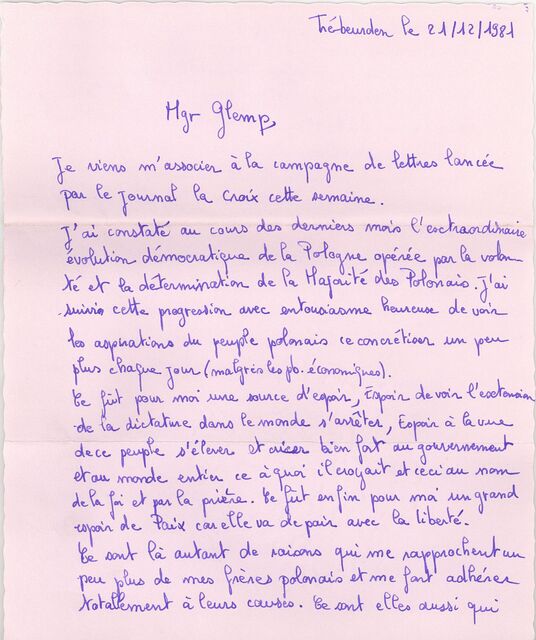 Trébeurden le 21/12/1981
Mgr Glemp,
Je viens m'associer à la campagne de lettres lancée
par le journal la Croix cette semaine.
J'ai constaté au cours des derniers mois l'esctraordinaire
évolution démocratique de la Pologne opérée par la volon
té et la détermination de la Majorité des Polonais. J'ai
suivis cette progression avec entousiasme heureuse de voir
les aspirations du peuple polonais ce concrétiser un peu
plus chaque jour (malgrès les pb. économiques).
Ce fût pour moi une source d'espoir, Espoir de voir l'esctension
de la dictature dans le monde s'arrêter, Espoir à la vue
de ce peuple s'élever et crier bien fort au gouvernement
et au monde entier ce à quoi il croyait et ceci au nom
de la foi et par la prière. Ce fût enfin pour moi un grand
espoir de Paix car elle va de pair avec la liberté.
Ce sont là autant de raisons qui me rapprochent un
peu plus de mes frères polonais et me font adhérer
totallement à leurs causes. Ce sont elles aussi qui